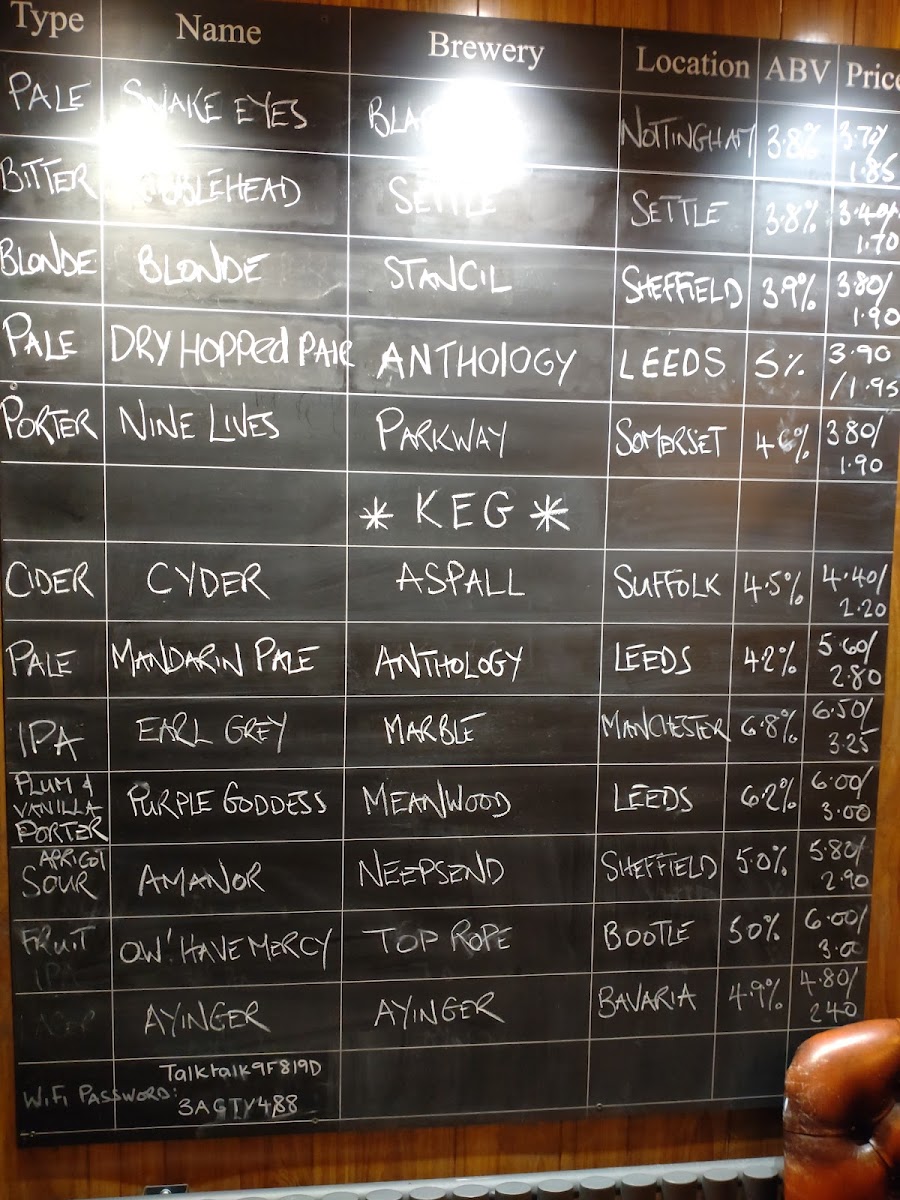 Type Name Brewery Location ABV Price
PALE SNAKE EYES NOTTINGHAM 3.8% 3.70/
1.85
BITTER SETTLE SETTLE 3.8% 3.40/
1.70
BLONDE BLONDE STANCIL SHEFFIELD 3.9% 3.80/
1.90
PALE DRY HOPPed PAlE ANTHOlOGY LEEDS 5% 3.90
/1.95
PORTER NINE LIVES PARKWAY SOMERSET 4.6% 3.80/
1.90
* KEG *
CIDER CYDER ASPALL SUFFOLK 4.5% 4.40/
2.20
PALE MANDARIN PALE ANTHOLOGY LEEDS 4.2% 5.60/
2.80
IPA EARL GREY MARBLE MANCHESTER 6.8% 6.50/
3.25
PLUM &
VANILLA
PORTER PURPLE GODDESS MEANWOOD LEEDS 6.2% 6.00/
3.00
APRICOT
SOUR AMANOR NEEPSEND SHEFFIELD 5.0% 5.80/
2.90
FRUIT
IPA OW' HAVE MERCY TOP ROPE BOOTLE 5.0% 6.00/
3.00
LAGER AYINGER AYINGER BAVARIA 4.9% 4.80/
2.40
WiFi PASSWORD: Talktalk9F819D
3AGTY488